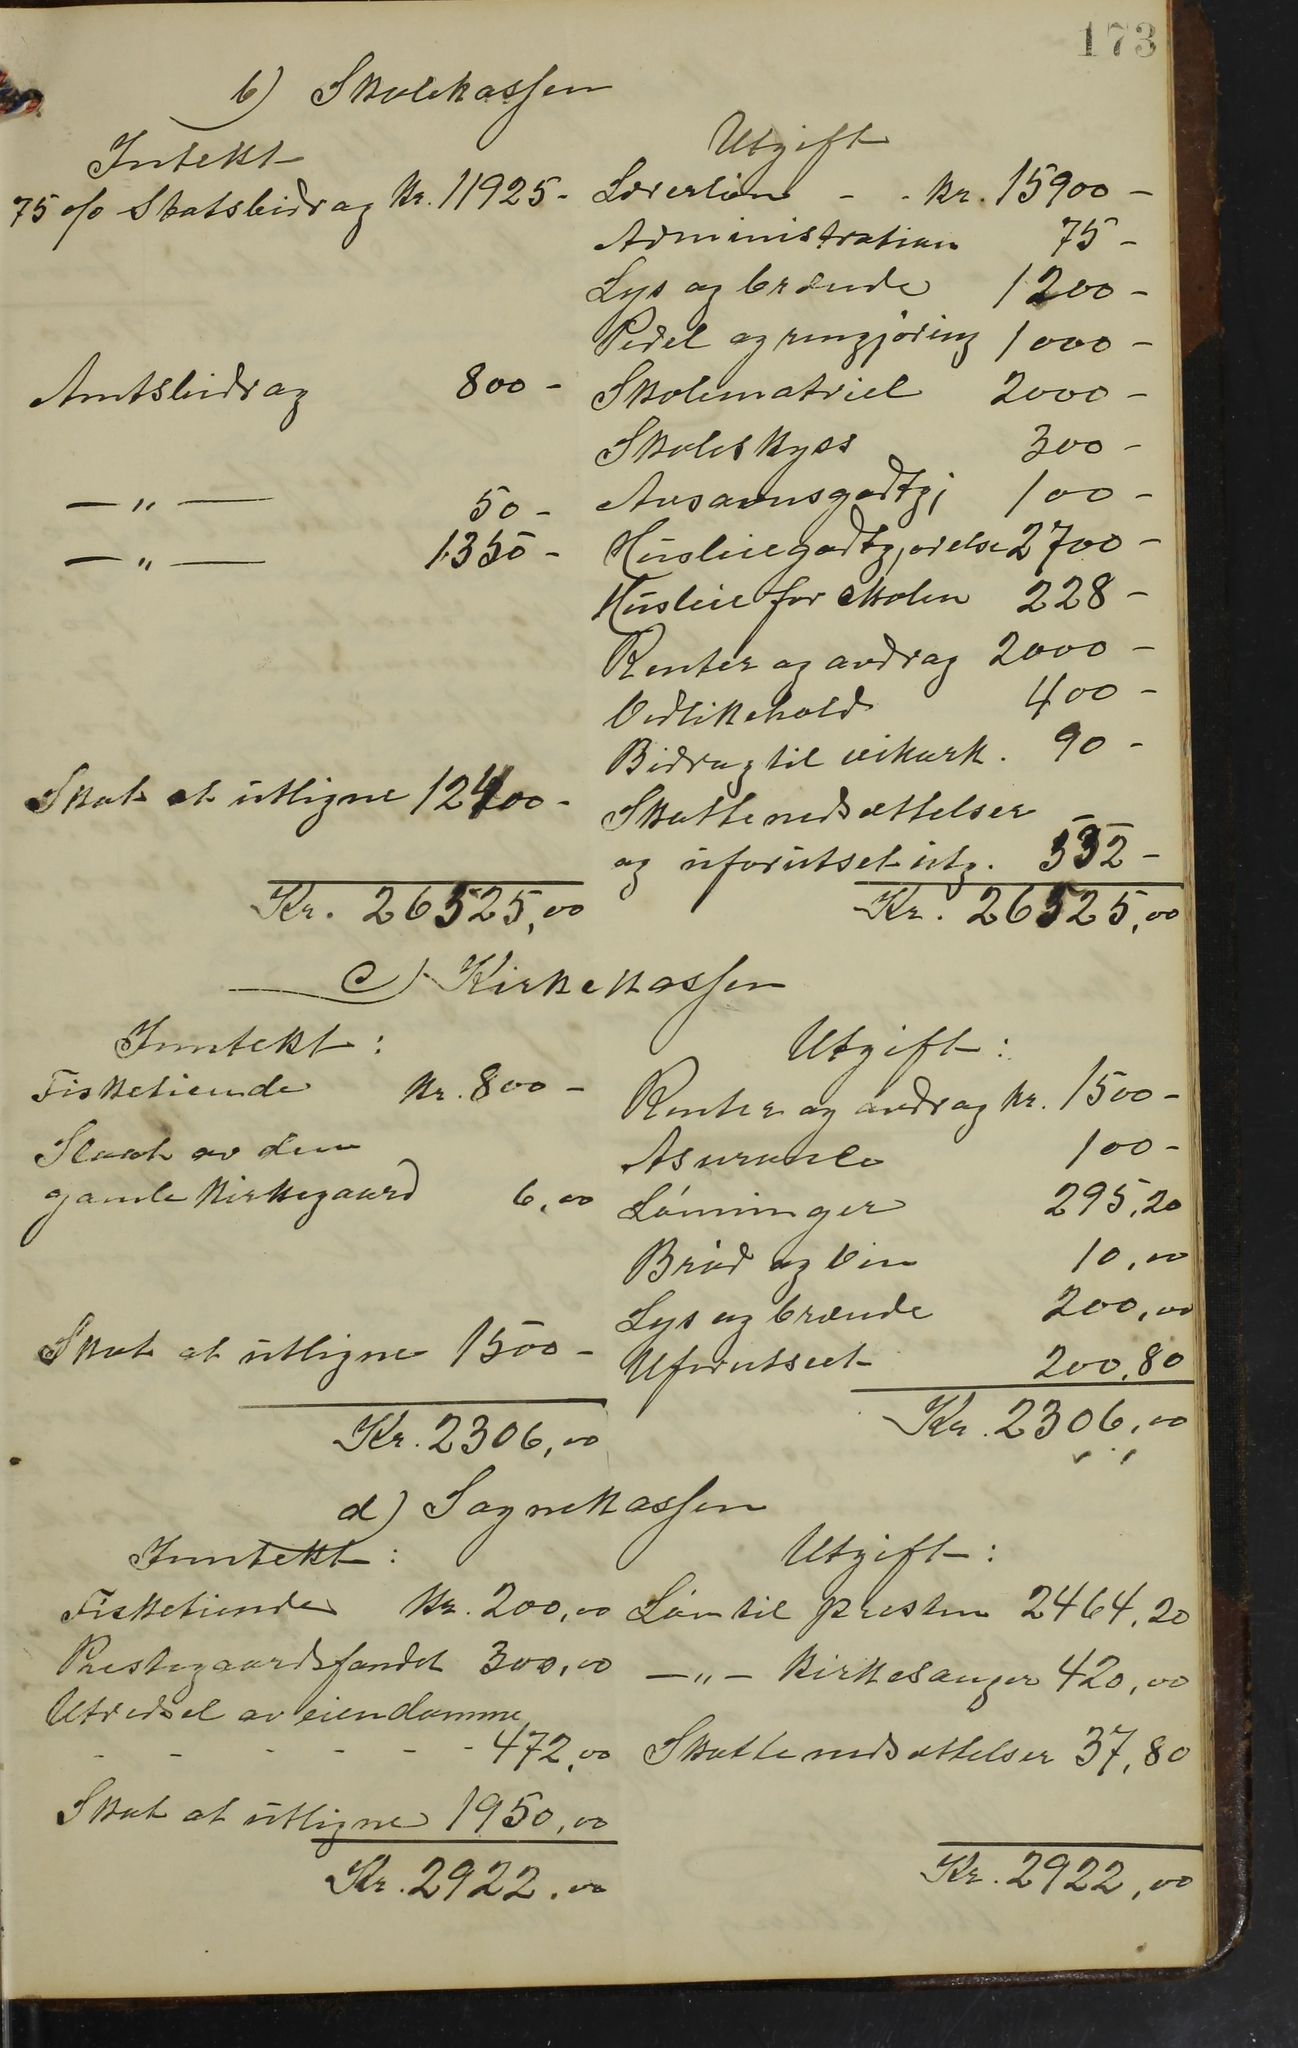 173
b) Skolekassen
Intekt
Utgift
75 o/o Statsbidrag Kr. 11925 - Lærerløn - - kr. 15900 -
Administration 75 -
Lys og brænde 1200 -
Pedel og rengjøring 1000 -
Amtsbidrag 800 - Skolematriel 2000 -
Skoleskyss 300 -
- " - 50 - Avsavnsgodtgj 100 -
- " - 1350 - Husleiegodtgjørelse 2700 -
Husleie for skolen 228 -
Renter og avdrag 2000 -
Vedlikehold 400 -
Bidrag til vikark. 90 -
Skat at utligne 12400 - Skattenedsættelser
og uforutset utg. 532 -
Kr. 26525,00 Kr. 26525,00
c) Kirkekassen
Inntekt : Utgift :
Fisketiende kr. 800 - Renter og avdrag kr. 1500 -
Slaat av den Asuranse 100 -
gamle kirkegaard 6,00 Lønninger 295,20
Brød og vin 10,00
Lys og brænde 200,00
Skat at utligne 1500 - Uforutseet 200,80
Kr. 2306,00 Kr. 2306,00
d) Sognekassen
Inntekt : Utgift :
Fisketiende kr. 200,00 Løn til presten 2464,20
Prestegaardsfondet 300,00 - " - Kirkesanger 420,00
Utredsel av eiendomme
- - - - - - 472,00 Skattenedsættelser 37,80
Skat at utligne 1950,00
Kr. 2922,00 Kr. 2922,00